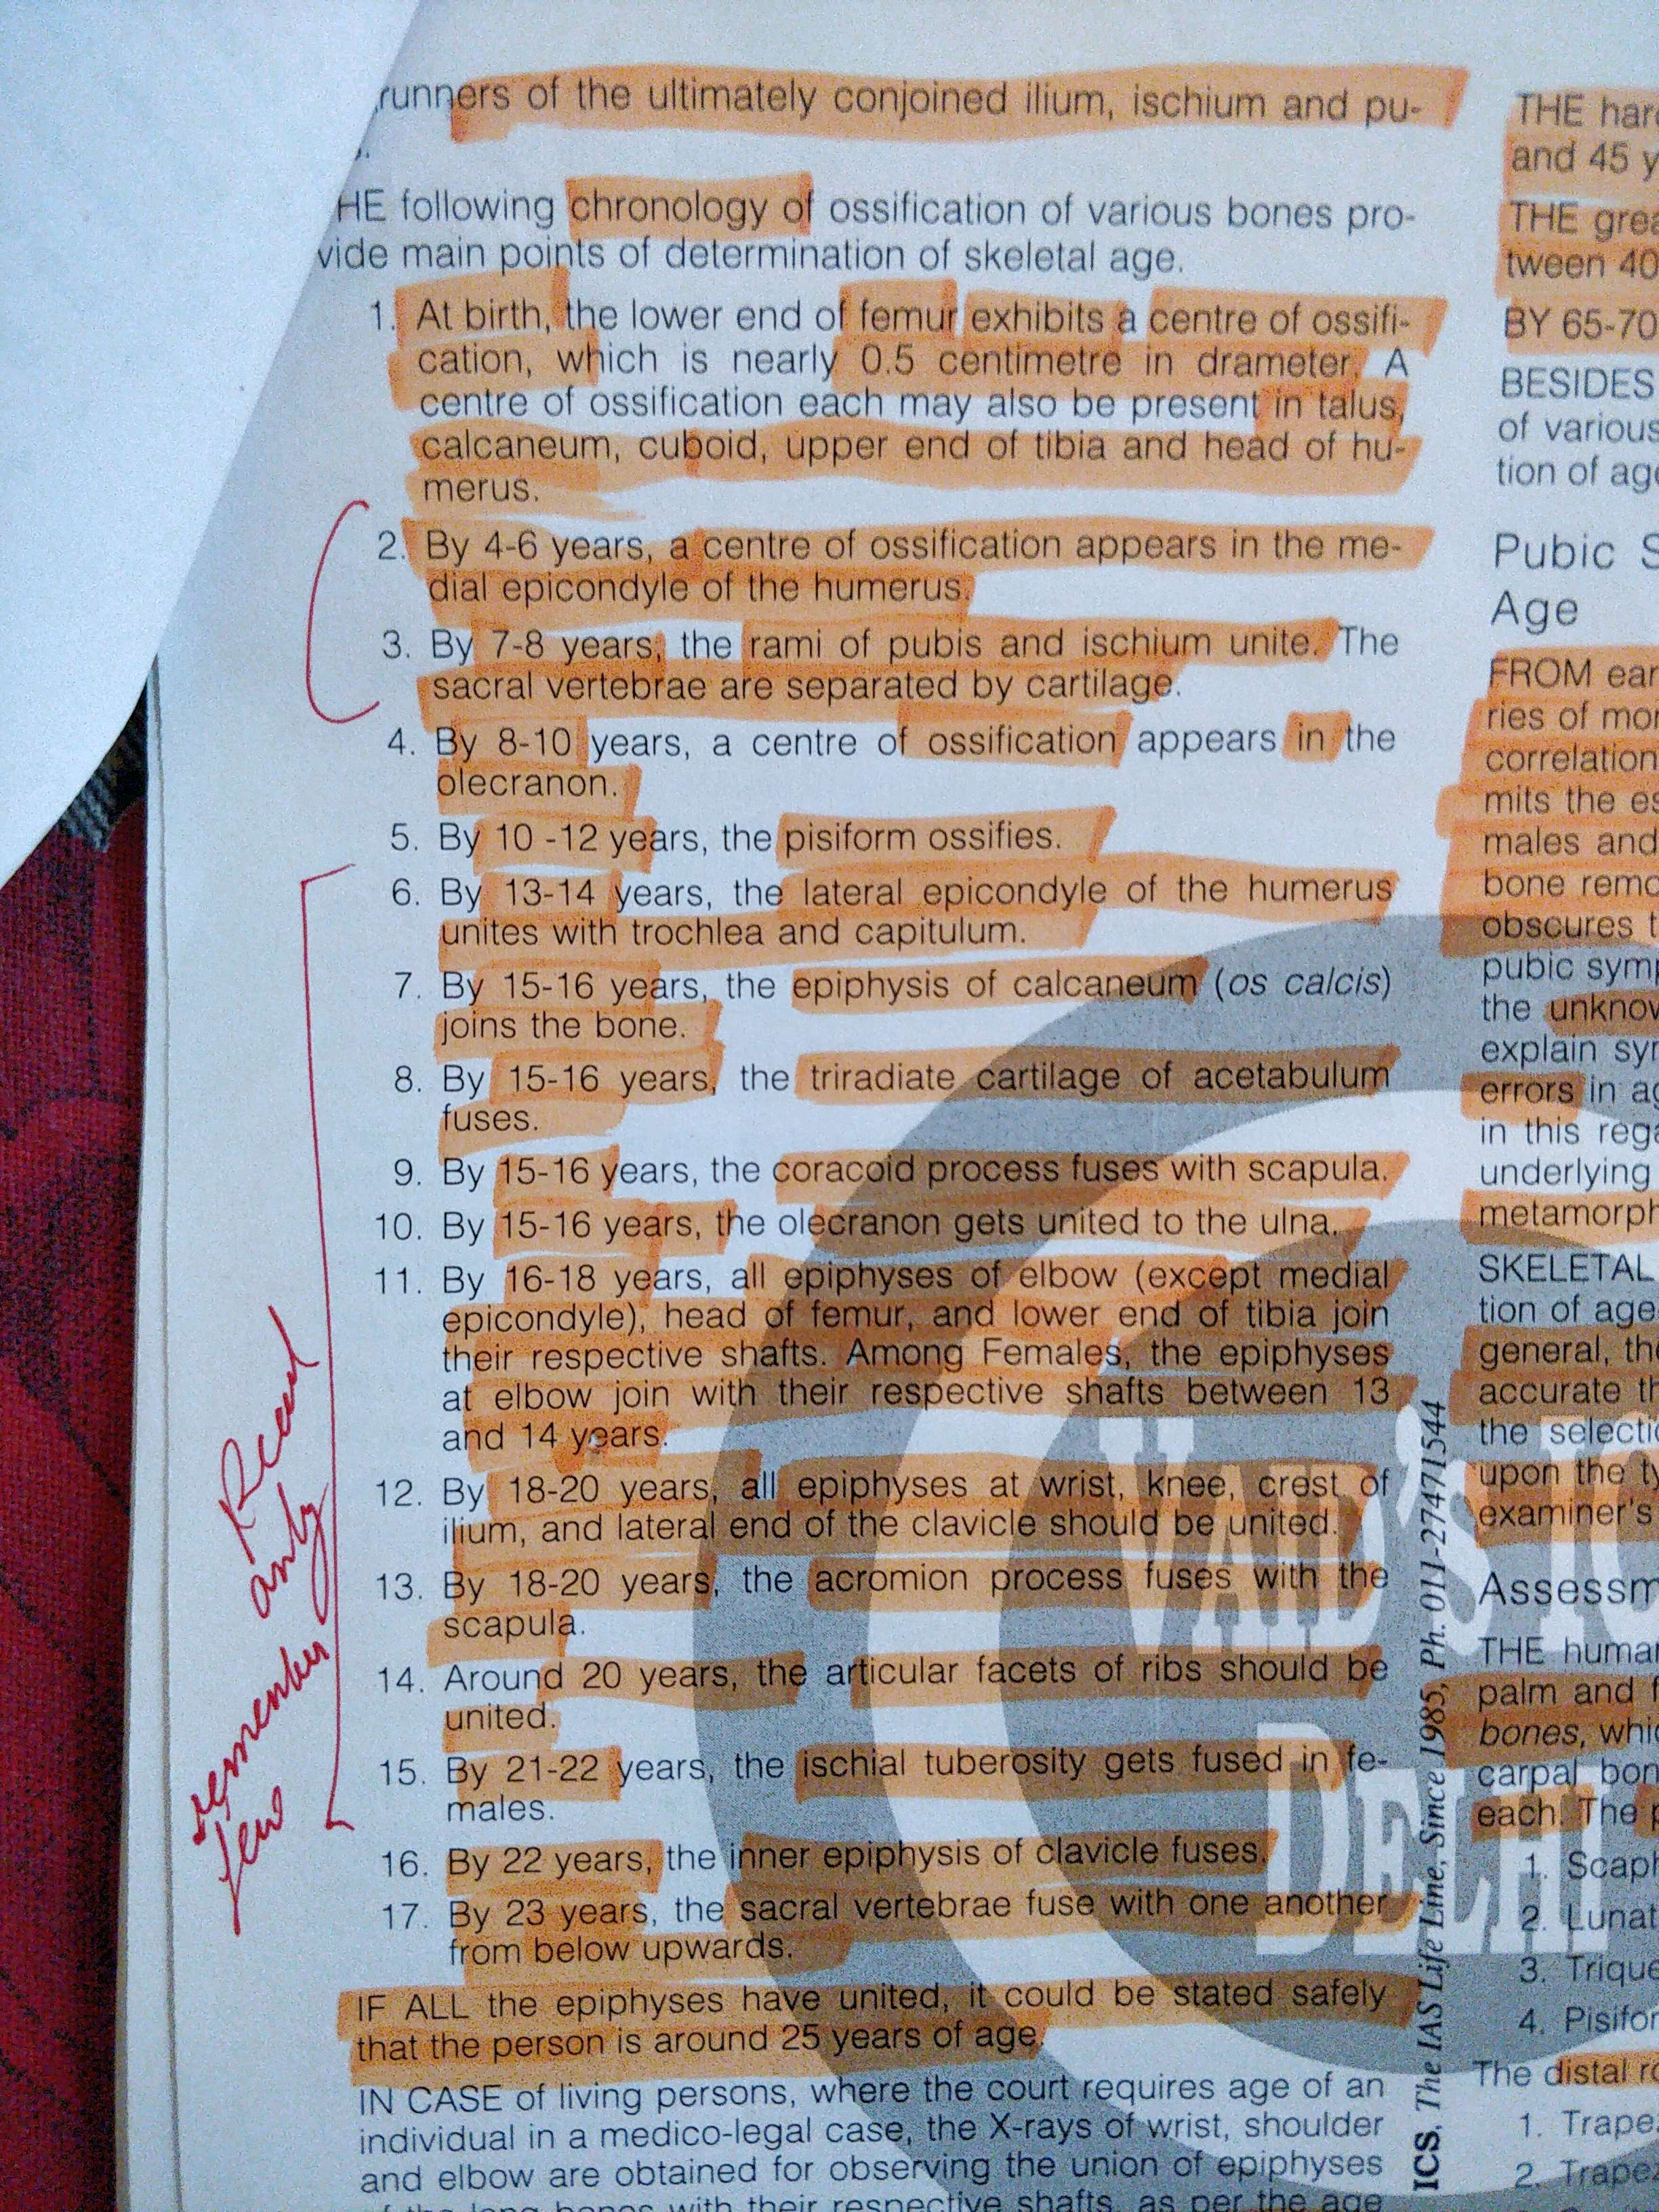 runners of the ultimately conjoined ilium, ischium and pu-
HE following chronology of ossification of various bones pro-
vide main points of determination of skeletal age.
1. At birth, the lower end of femur exhibits a centre of ossifi-
cation, which is nearly 0.5 centimetre in drameter. A
centre of ossification each may also be present in talus,
calcaneum, cuboid, upper end of tibia and head of hu-
merus.
2. By 4-6 years, a centre of ossification appears in the me-
dial epicondyle of the humerus.
3. By 7-8 years, the rami of pubis and ischium unite. The
sacral vertebrae are separated by cartilage.
4. By 8-10 years, a centre of ossification appears in the
olecranon.
5. By 10 -12 years, the pisiform ossifies.
6. By 13-14 years, the lateral epicondyle of the humerus
unites with trochlea and capitulum.
7. By 15-16 years, the epiphysis of calcaneum (os calcis)
joins the bone.
8. By 15-16 years, the triradiate cartilage of acetabulum
fuses.
9. By 15-16 years, the coracoid process fuses with scapula.
10. By 15-16 years, the olecranon gets united to the ulna.
11. By 16-18 years, all epiphyses of elbow (except medial
epicondyle), head of femur, and lower end of tibia join
their respective shafts. Among Females, the epiphyses
at elbow join with their respective shafts between 13
and 14 years.
12. By 18-20 years, all epiphyses at wrist, knee, crest of
ilium, and lateral end of the clavicle should be united.
13. By 18-20 years, the acromion process fuses with the
scapula.
14. Around 20 years, the articular facets of ribs should be
united.
15. By 21-22 years, the ischial tuberosity gets fused in fe-
males.
16. By 22 years, the inner epiphysis of clavicle fuses.
17. By 23 years, the sacral vertebrae fuse with one another
from below upwards.
IF ALL the epiphyses have united, it could be stated safely
that the person is around 25 years of age.
IN CASE of living persons, where the court requires age of an
individual in a medico-legal case, the X-rays of wrist, shoulder
and elbow are obtained for observing the union of epiphyses
of the long bones with their respective shafts, as per the age
Read
only
remember
few
VAID'S
DELHI
ICS, The IAS Life Line, Since 1985, Ph. 011-27471544
THE
and 45
THE
tween 40
BY 65-70
BESIDES
of various
tion of
Pubic
Age
FROM
ries of
correlation
mits the
males and
bone
obscures
pubic
the
explain
errors in
in this
underlying
SKELETAL
tion of age
general,
accurate
the
upon the
examiner's
THE
palm and
bones,
carpal
each. The
1.
2.
3.
4.
The distal
1.
2.